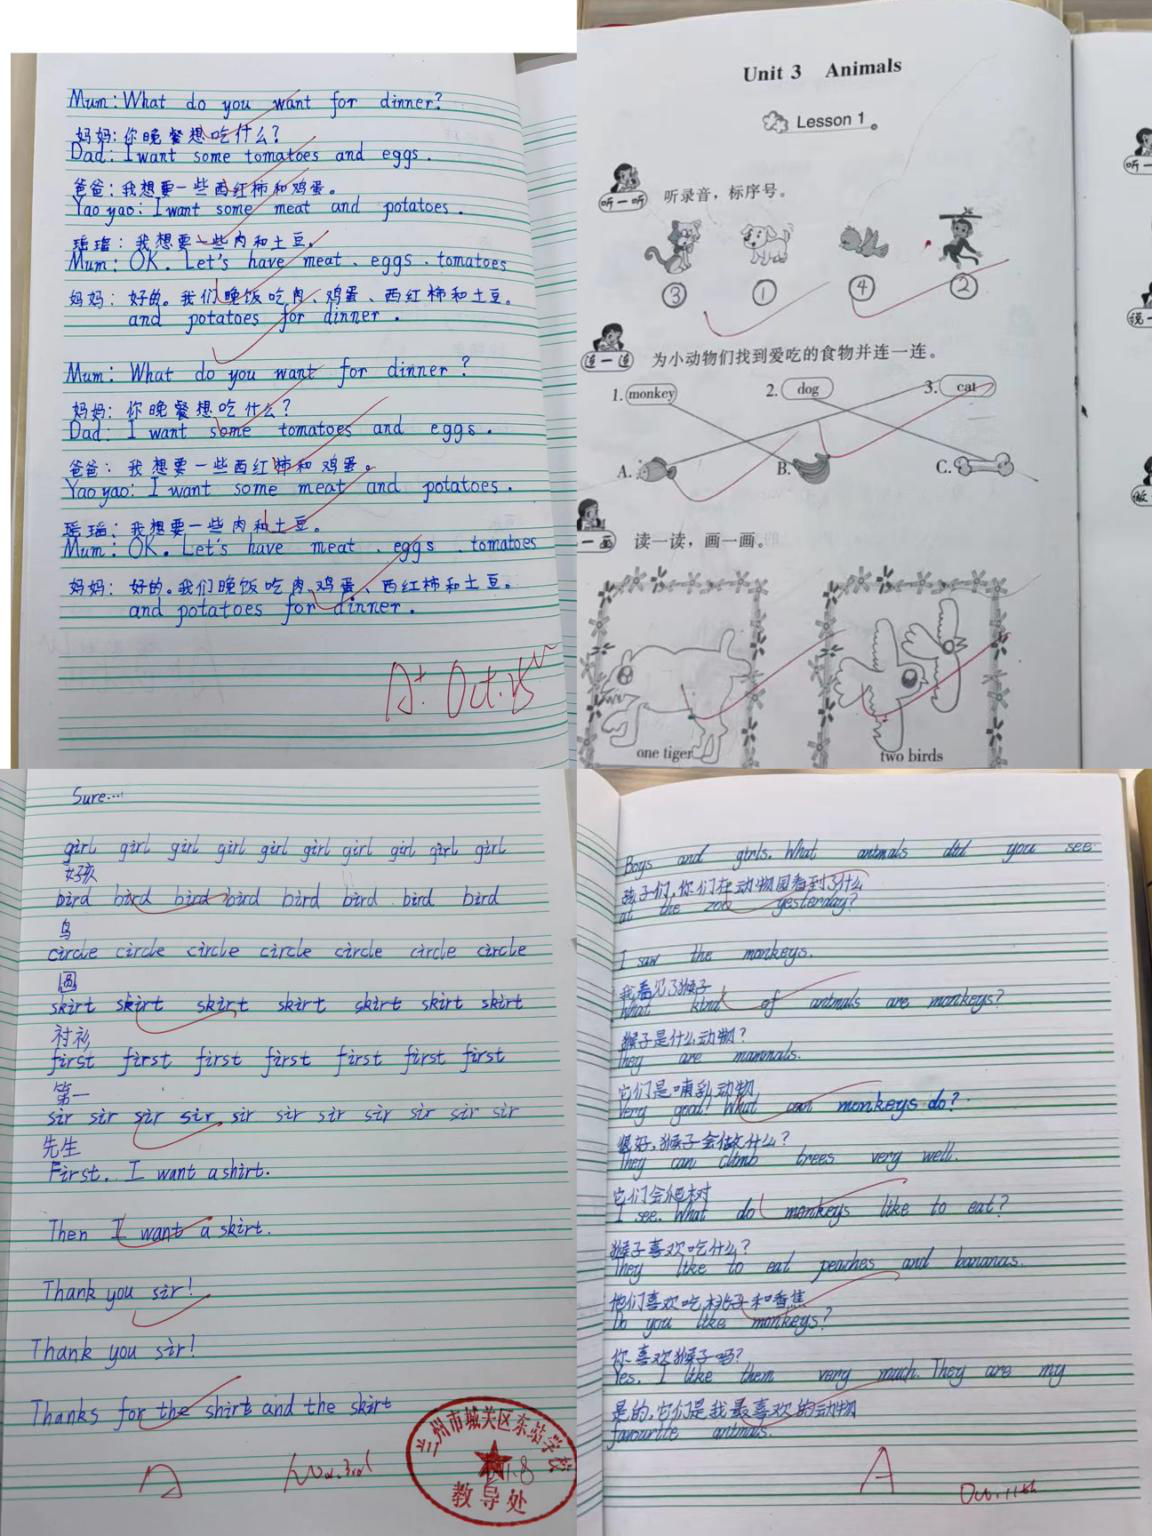 Mum: What do you want for dinner?
妈妈: 你晚餐想吃什么?
Dad: I want some tomatoes and eggs.
爸爸: 我想要一些西红柿和鸡蛋。
Yao yao: I want some meat and potatoes.
瑶瑶: 我想要一些肉和土豆。
Mum: OK. Let's have meat、eggs、tomatoes
妈妈: 好的。我们晚饭吃肉、鸡蛋、西红柿和土豆。
and potatoes for dinner.
Mum: What do you want for dinner?
妈妈: 你晚餐想吃什么?
Dad: I want some tomatoes and eggs.
爸爸: 我想要一些西红柿和鸡蛋。
Yao yao: I want some meat and potatoes.
瑶瑶: 我想要一些肉和土豆。
Mum: OK. Let's have meat、eggs、tomatoes
妈妈: 好的。我们晚饭吃肉、鸡蛋、西红柿和土豆。
and potatoes for dinner.
A+. Oct.
Unit 3 Animals
Lesson 1
听一听 听录音，标序号。
③ ① ④ ②
连一连 为小动物们找到爱吃的食物并连一连。
1. monkey 2. dog 3. cat
A. B. C.
一画 读一读，画一画。
one tiger two birds
Sure...
girl girl girl girl girl girl girl girl girl girl
女孩
bird bird bird bird bird bird bird bird
鸟
circle circle circle circle circle circle circle
圆
skirt skirt skirt skirt skirt skirt skirt
衬衫
first first first first first first first
第一
sir sir sir sir sir sir sir sir sir sir sir
先生
First. I want a shirt.
Then I want a skirt.
Thank you sir!
Thank you sir!
Thanks for the shirt and the skirt
A Nov. 3rd
兰州市城关区东站学校
教导处
Boys and girls. What animals did you see
孩子们,你们在动物园看到了什么
at the zoo yesterday?
I saw the monkeys.
我看见了猴子
What kind of animals are monkeys?
猴子是什么动物?
They are mammals.
它们是哺乳动物
Very good! What can monkeys do?
很好,猴子会做什么?
They can climb trees very well.
它们会爬树
I see. What do monkeys like to eat?
猴子喜欢吃什么?
They like to eat peaches and bananas.
他们喜欢吃桃子和香蕉
Do you like monkeys?
你喜欢猴子吗?
Yes. I like them very much. They are my
是的,它们是我最喜欢的动物
favourite animals.
A Oct. 11th